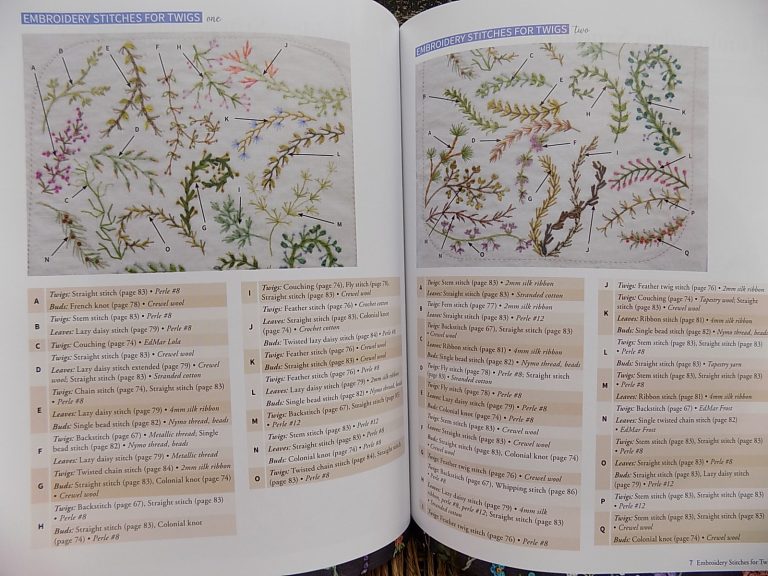 EMBROIDERY STITCHES FOR TWIGS one
A
B
C
D
E
F
G
H
I
J
K
L
M
N
O
A
Twigs: Straight stitch (page 83) • Perle #8
Buds: French knot (page 78) • Crewel wool
B
Twigs: Stem stitch (page 83) • Perle #8
Leaves: Lazy daisy stitch (page 79) • Perle #8
C
Twigs: Couching (page 74) • EdMar Lola
D
Twigs: Straight stitch (page 83) • Crewel wool
Leaves: Lazy daisy stitch extended (page 79) • Crewel
wool; Straight stitch (page 83) • Stranded cotton
E
Twigs: Chain stitch (page 74), Straight stitch (page 83)
• Perle #8
Leaves: Lazy daisy stitch (page 79) • 4mm silk ribbon
Buds: Single bead stitch (page 82) • Nymo thread, beads
F
Twigs: Backstitch (page 67) • Metallic thread; Single
bead stitch (page 82) • Nymo thread, beads
Leaves: Lazy daisy stitch (page 79) • Metallic thread
G
Twigs: Twisted chain stitch (page 84) • 2mm silk ribbon
Buds: Straight stitch (page 83), Colonial knot (page 74)
• Crewel wool
H
Twigs: Backstitch (page 67), Straight stitch (page 83)
• Perle #8
Buds: Straight stitch (page 83), Colonial knot
(page 74) • Perle #8
I
Twigs: Couching (page 74), Fly stitch (page 78),
Straight stitch (page 83) • Crewel wool
J
Twigs: Feather stitch (page 76) • Crochet cotton
Leaves: Straight stitch (page 83), Colonial knot
(page 74) • Crochet cotton
Buds: Twisted lazy daisy stitch (page 84) • Perle #8
K
Twigs: Feather stitch (page 76) • Crewel wool
Buds: Straight stitch (page 83) • Crewel wool
L
Twigs: Feather stitch (page 76) • Perle #8
Leaves: Lazy daisy stitch (page 79) • 2mm silk ribbon
Buds: Single bead stitch (page 82) • Nymo thread, beads
M
Twigs: Backstitch (page 67), Straight stitch (page 83)
• Perle #12
N
Twigs: Stem stitch (page 83) • Perle #12
Leaves: Straight stitch (page 83) • Perle #8
Buds: Colonial knot (page 74) • Perle #8
O
Twigs: Twisted chain stitch (page 84), Straight stitch
(page 83) • Perle #8
EMBROIDERY STITCHES FOR TWIGS two
A
B
C
D
E
F
G
H
I
J
K
L
M
N
O
P
Q
A
Twigs: Stem stitch (page 83) • 2mm silk ribbon
Leaves: Straight stitch (page 83) • Stranded cotton
B
Twigs: Fern stitch (page 77) • 2mm silk ribbon
Leaves: Straight stitch (page 83) • Perle #12
C
Twigs: Backstitch (page 67), Straight stitch (page 83)
• Crewel wool
Leaves: Ribbon stitch (page 81) • 4mm silk ribbon
Buds: Single bead stitch (page 82) • Nymo thread, beads
D
Twig: Fly stitch (page 78) • Perle #8; Straight stitch
(page 83) • Stranded cotton
Twig: Fly stitch (page 78) • Perle #8
Leaves: Lazy daisy stitch (page 79) • Perle #8
Buds: Colonial knot (page 74) • Perle #8
Twig: Stem stitch (page 83) • Crewel wool
Leaves: Straight stitch (page 83) • Crewel wool
Buds: Straight stitch (page 83), Colonial knot (page 74)
• Crewel wool
Twig: Feather twig stitch (page 76) • Crewel wool
Twig: Backstitch (page 67), Whipping stitch (page 86)
• Perle #8
Lazy daisy stitch (page 79) • 4mm silk
ribbon, perle #8, perle #12; Straight stitch (page 83)
• Stranded cotton
Twig: Feather twig stitch (page 76) • Perle #8
J
Twig: Feather twig stitch (page 76) • 2mm silk ribbon
K
Twigs: Couching (page 74) • Tapestry wool; Straight
stitch (page 83) • Crewel wool
Leaves: Ribbon stitch (page 81) • 4mm silk ribbon
Buds: Single bead stitch (page 82) • Nymo thread, beads
L
Twigs: Stem stitch (page 83), Straight stitch (page 83)
• Perle #8
Buds: Straight stitch (page 83) • Tapestry yarn
M
Twigs: Stem stitch (page 83), Straight stitch (page 83)
• Perle #8
Leaves: Ribbon stitch (page 81) • 4mm silk ribbon
N
Twigs: Backstitch (page 67) • EdMar Frost
Leaves: Single twisted chain stitch (page 82)
• EdMar Frost
O
Twigs: Stem stitch (page 83), Straight stitch (page 83)
• Perle #8
Leaves: Straight stitch (page 83), Lazy daisy stitch
(page 79) • Perle #12
P
Twigs: Stem stitch (page 83), Straight stitch (page 83)
• Perle #12
Q
Twigs: Stem stitch (page 83), Straight stitch (page 83)
• Crewel wool
Buds: Colonial knot (page 74) • Crewel wool
7 Embroidery Stitches for Tw